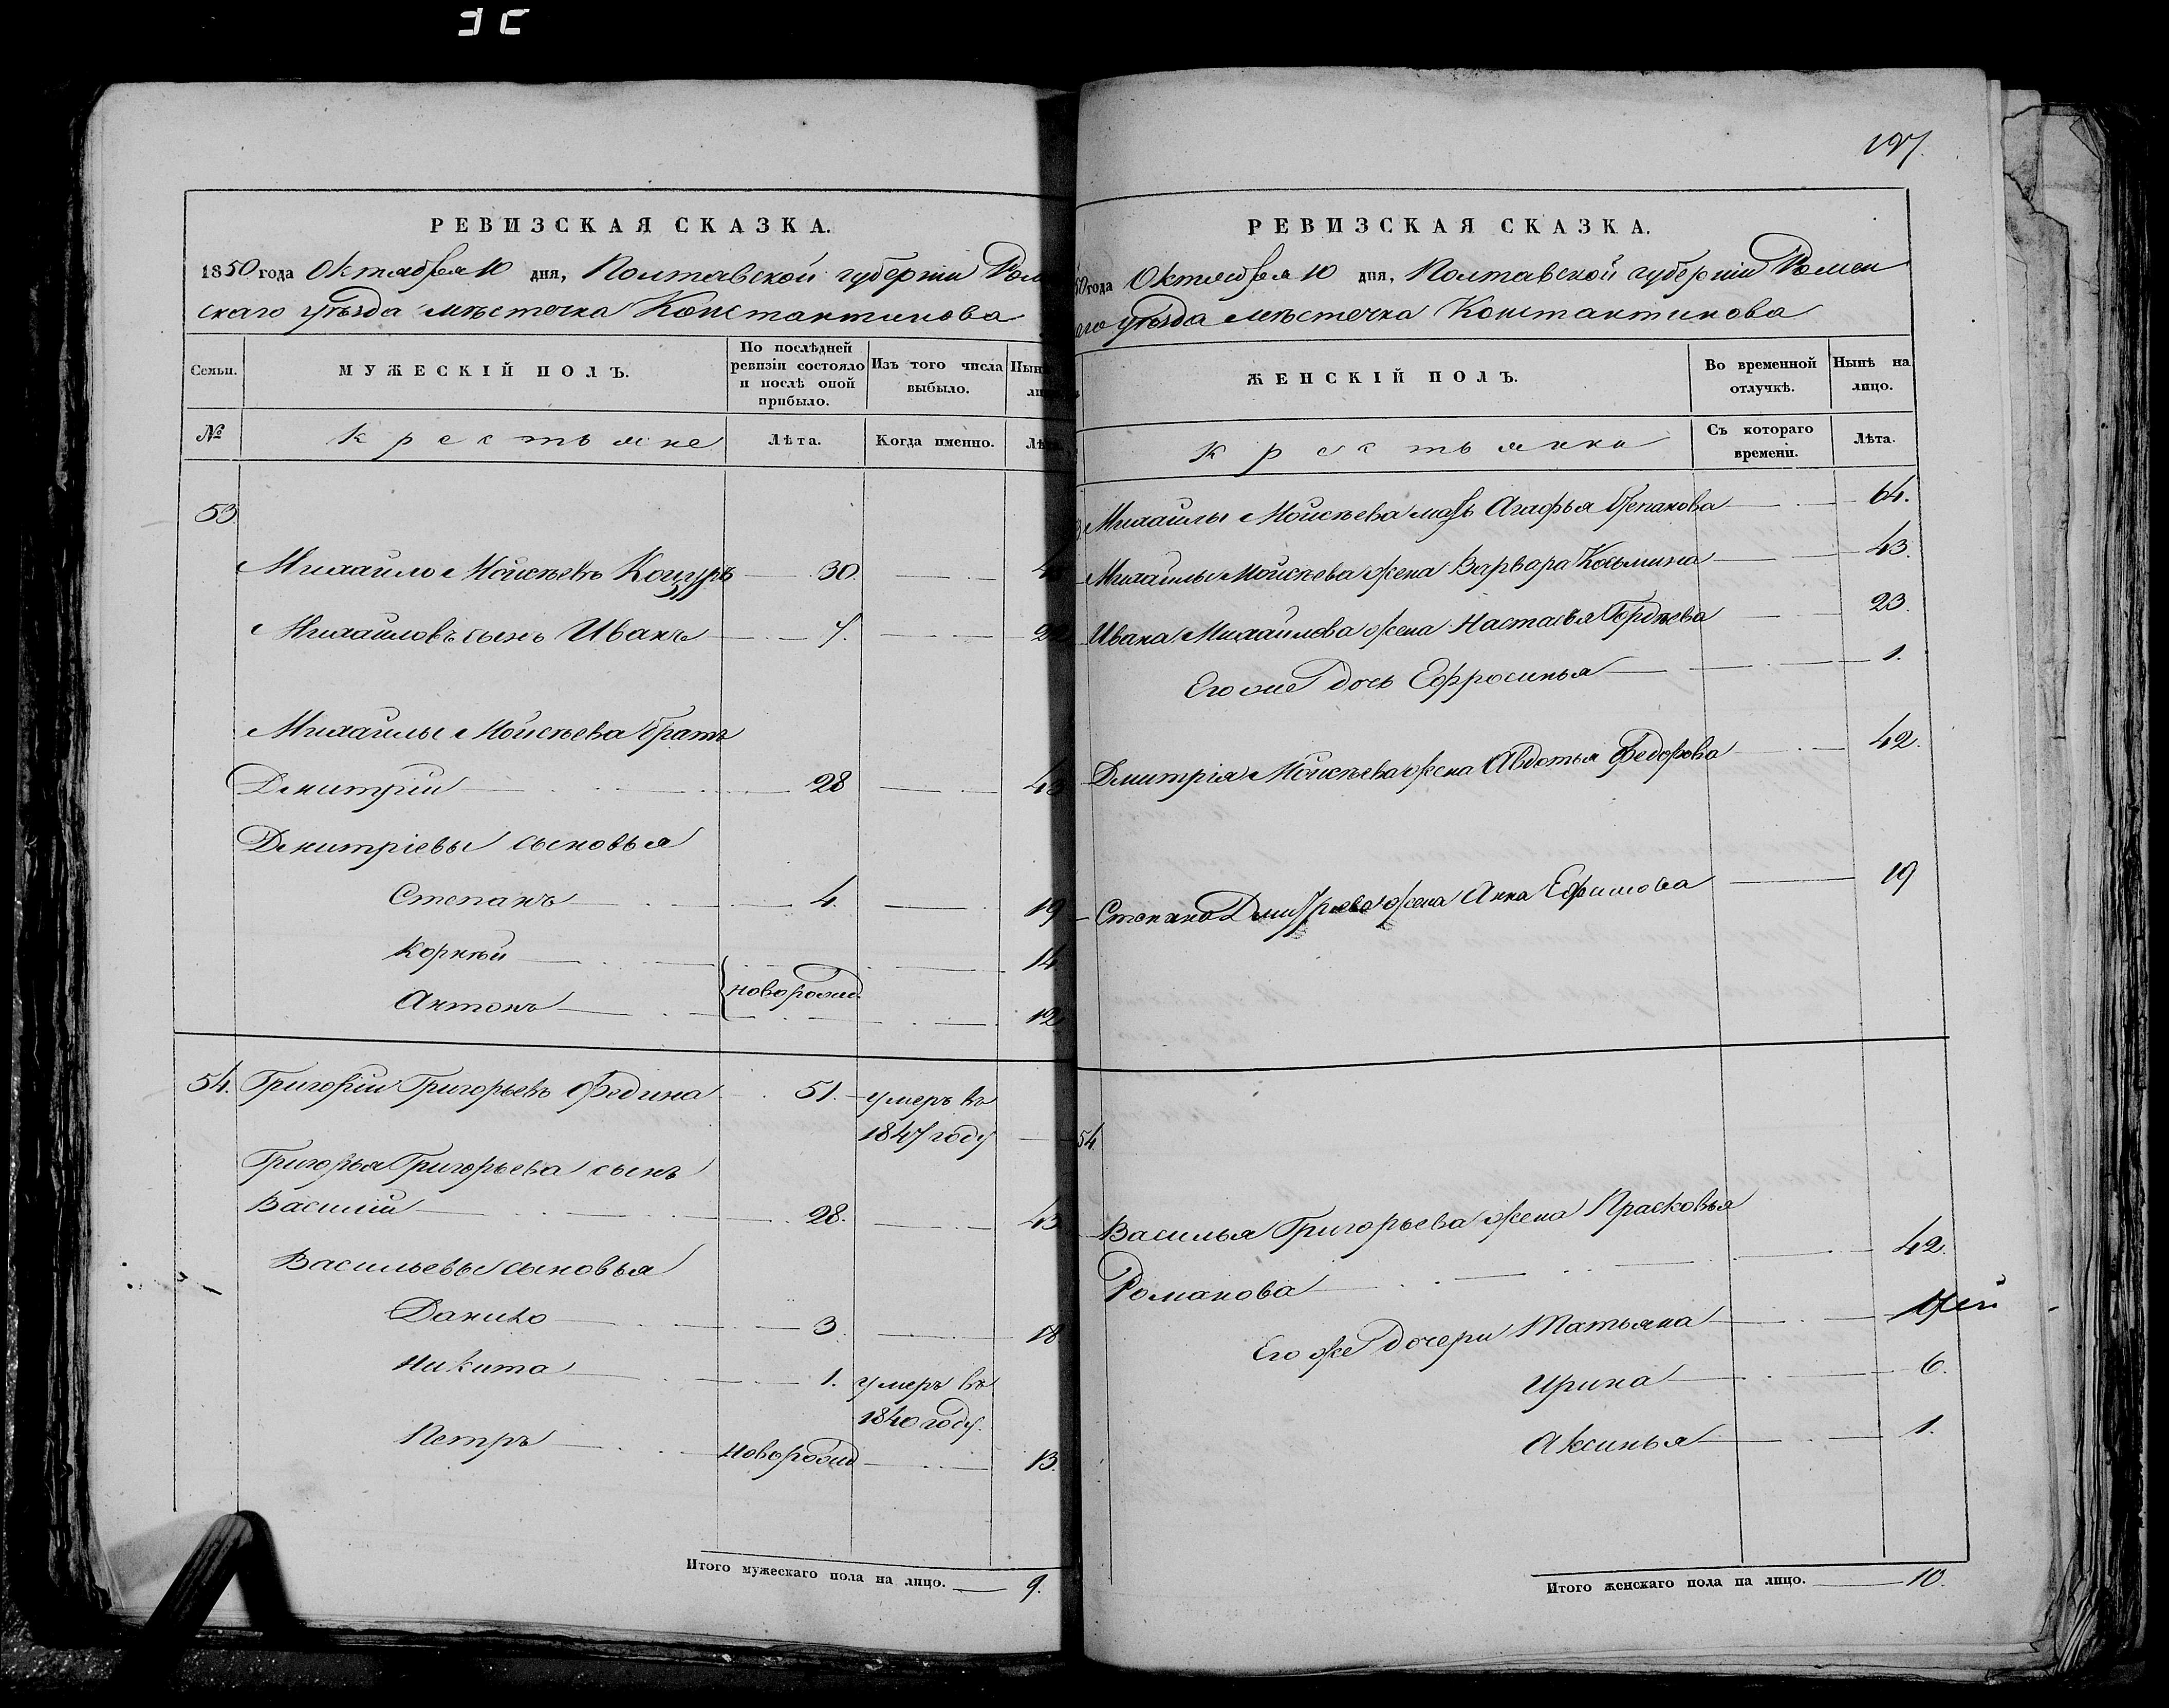 197.
РЕВИЗСКАЯ СКАЗКА.
1850 года Октября 10 дня, Полтавской губерніи Ромен
скаго уѣзда мѣстечка Константинова
Семьи.
МУЖЕСКІЙ ПОЛЪ.
По послѣдней ревизіи состояло и послѣ оной прибыло.
Изъ того числа выбыло.
№
Крестьяне
Лѣта.
Когда именно.
53
Михайло Мойсѣевъ 30.
Михайловъ сынъ Иванъ 7.
Михайлы Мойсѣева братъ
Дмитрій 28
Дмитріевы сыновья
Степанъ 4. 19
Корнѣй 14
новорожд.
Антонъ 12
54. Григорій Григорьевъ Федина 51. умеръ въ
1847 году
Григорья Григорьева сынъ
Василій 28. 43
Васильевы сыновья
Данило 3. 18
Никита 1. умеръ въ
1840 году.
Петръ новорожд 13.
Итого мужескаго пола на лицо. 9.
РЕВИЗСКАЯ СКАЗКА.
50 года Октября 10 дня, Полтавской губерніи Ромен
аго уѣзда мѣстечка Константинова
ЖЕНСКІЙ ПОЛЪ.
Во временной отлучкѣ.
Нынѣ на лицо.
Крестьянки
Съ котораго времени.
Лѣта.
Михайлы Мойсѣева мать Агафья Степанова 64.
Михайлы Мойсѣева жена Варвара Косьмина 43.
Ивана Михайлова жена Настасья Гордѣева 23.
Его же дочь Ефросинья 1.
Дмитрія Мойсѣева жена Авдотья Федорова 42.
Степана Дмитріева жена Анна Ефимова 19
54.
Василья Григорьева жена Прасковья
Романова 42.
Его же дочери Татьяна
Ирина 6.
Аксинья 1.
Итого женскаго пола на лицо. 10.